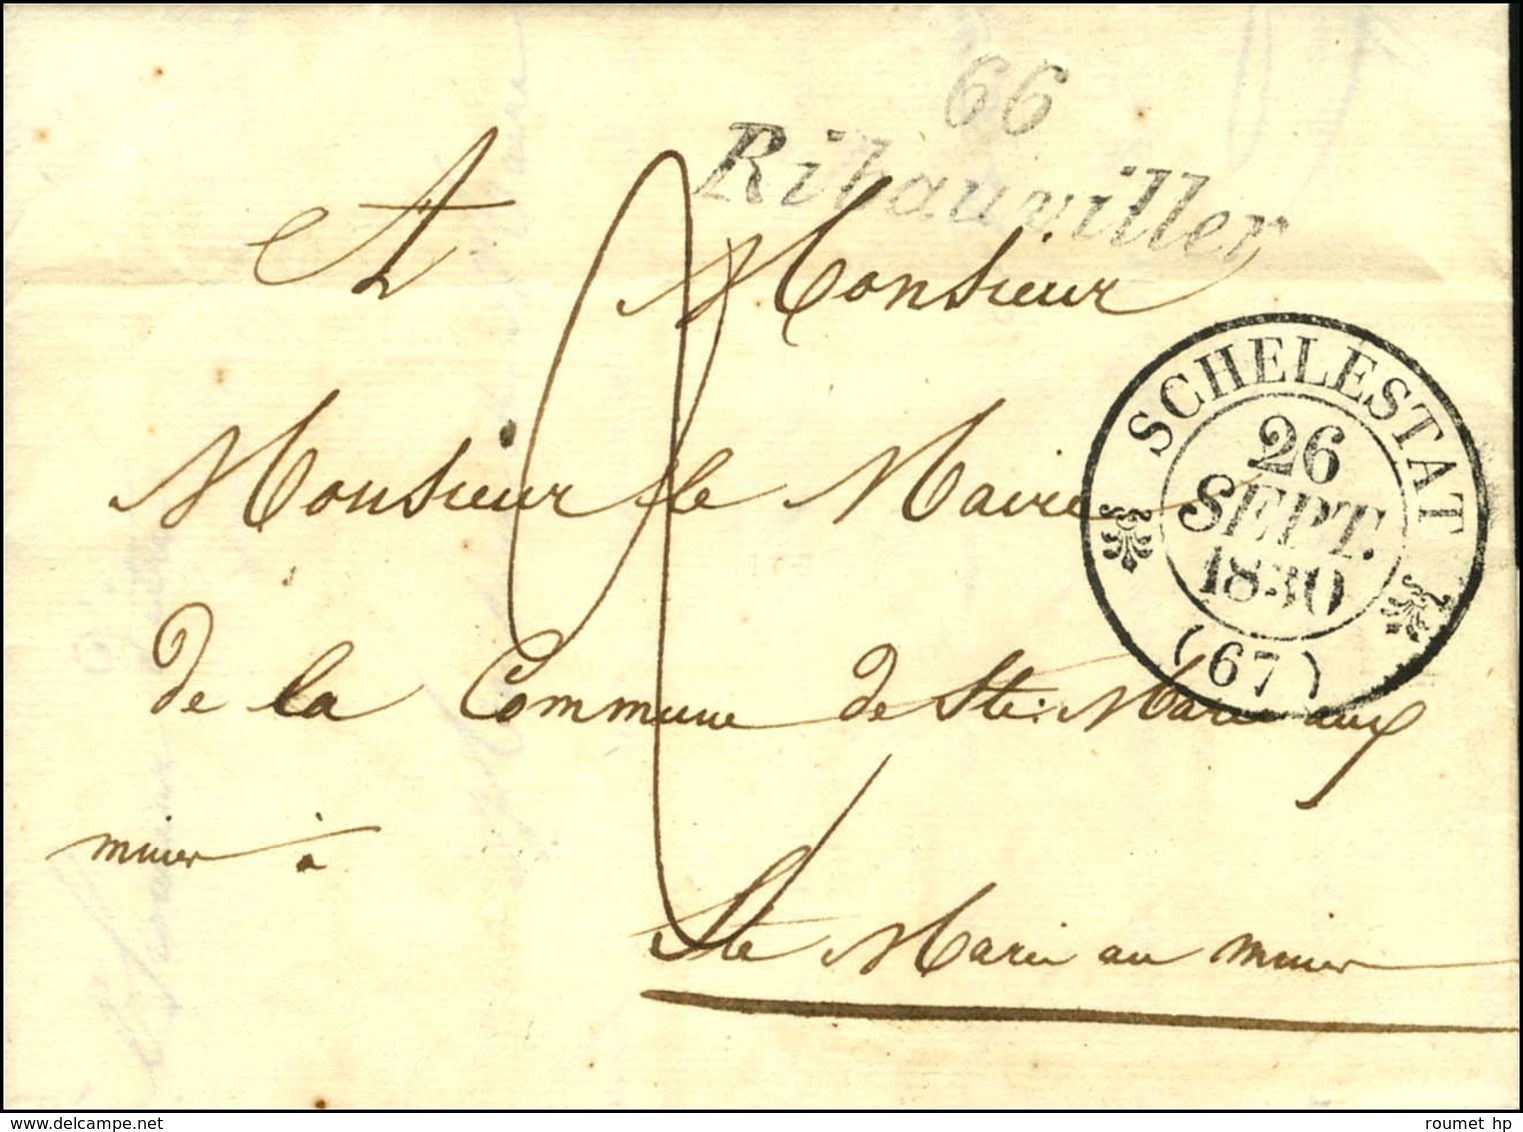 66
Ribauviller
A Monsieur
Monsieur le Maire
de la Commune de Ste. Marie aux
mines à
Ste Marie au mines
SCHELESTAT
26
SEPT.
1830
(67)
2
delcampe.net
roumet hp